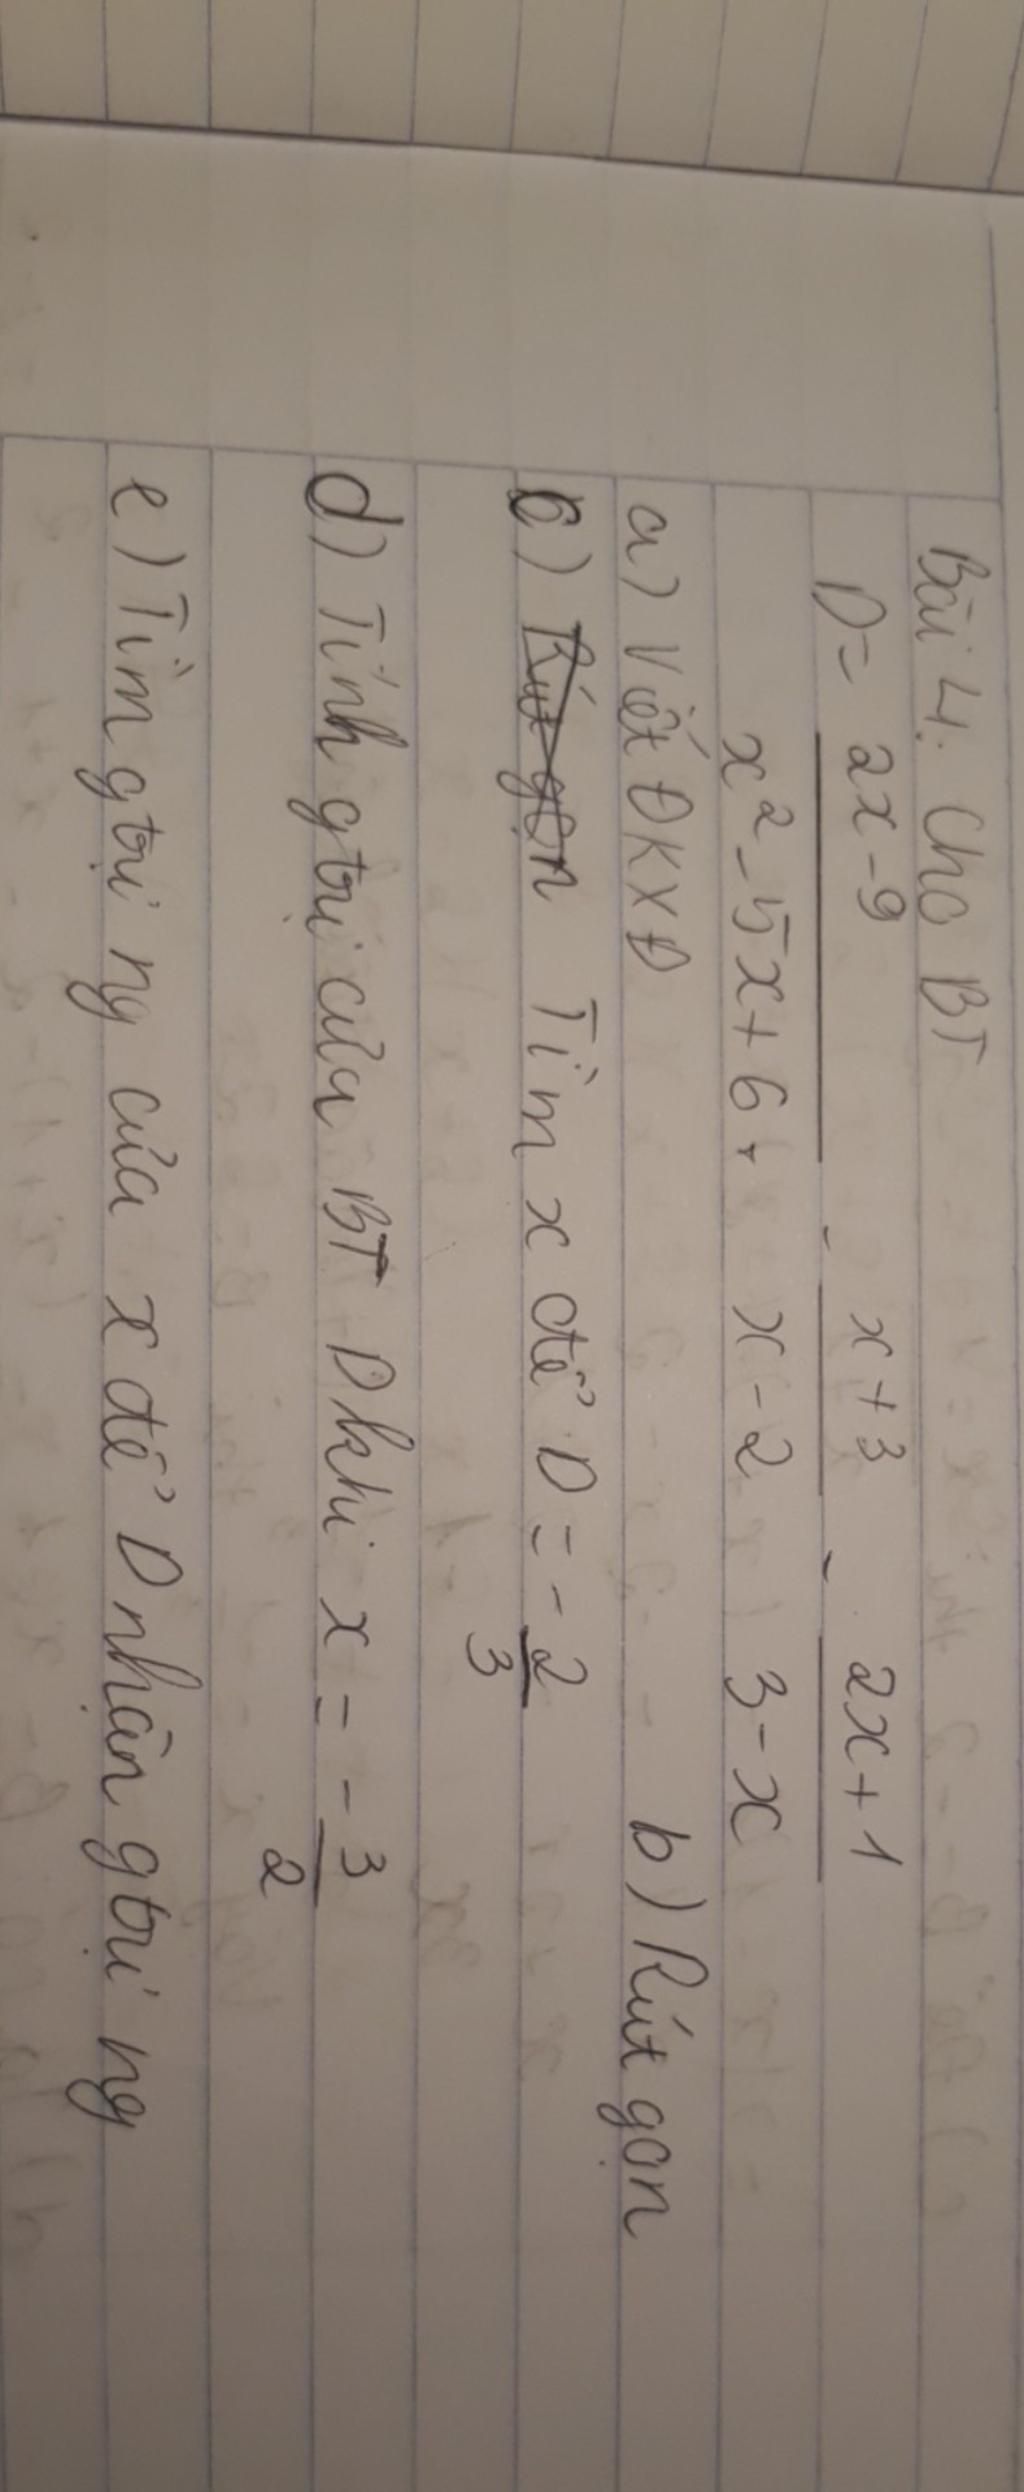 Bài 4. Cho BT
D = \frac{2x-9}{x^2-5x+6} - \frac{x+3}{x-2} - \frac{2x+1}{3-x}
a) Viết ĐKXĐ b) Rút gọn
c) Rút gọn Tìm x để D = -\frac{2}{3}
d) Tính gtrị của BT D khi x = -\frac{3}{2}
e) Tìm gtrị ng của x để D nhận gtrị ng